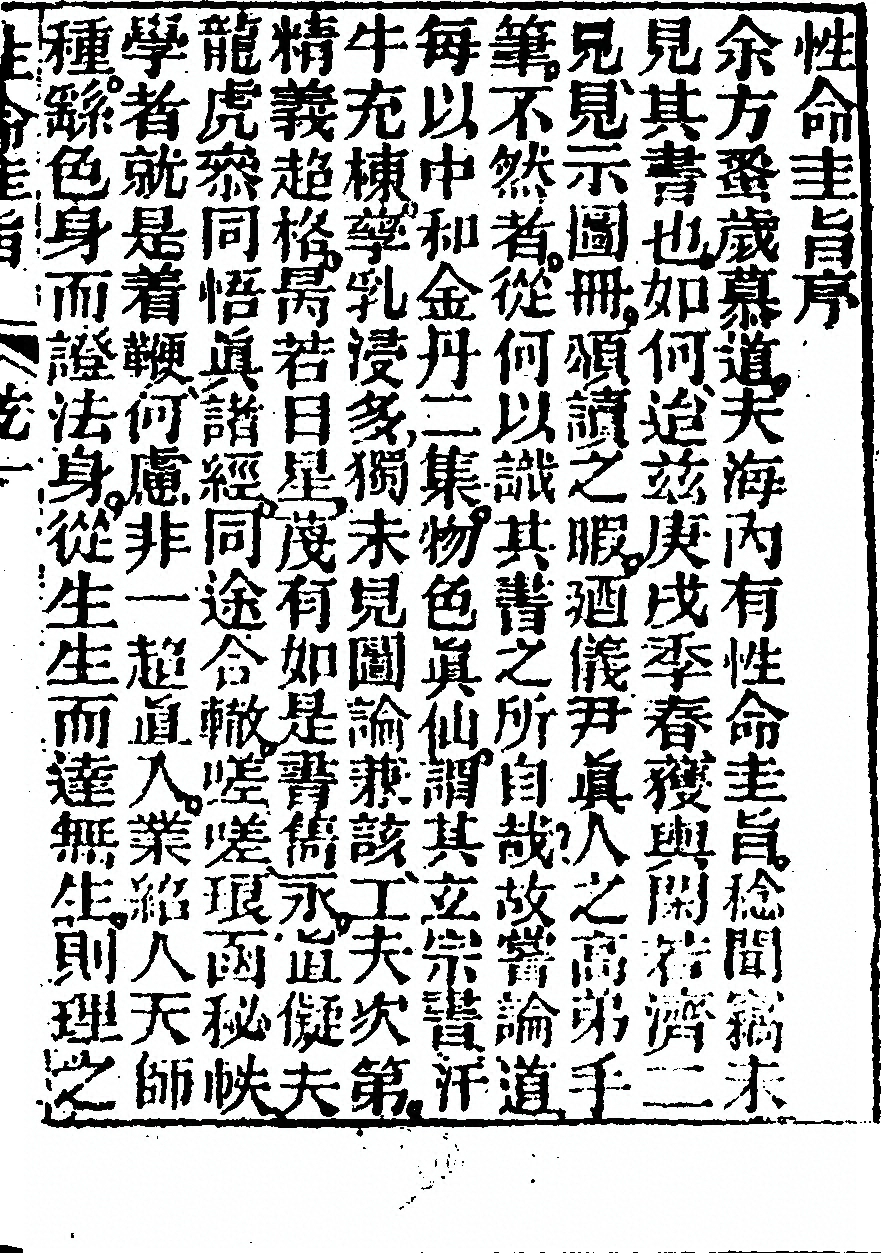 性命圭旨序
余方蚤歲慕道。夫海內有性命圭旨。稔聞竊未
見其書也。如何。迨茲庚戌季春。獲與閑若濟二
兄見示圖冊。頌讀之暇。廼儀尹眞人之高弟手
筆。不然者。從何以識其書之所自哉。故嘗論道
每以中和金丹二集。物色眞仙。謂其立宗書汗
牛充棟。孳乳浸多。獨未見圖論兼該。工夫次第。
精義超格。昺若日星。蔑有如是書雋永。直儗夫
龍虎叅同悟眞諸經。同途合轍。嗟嗟琅函秘帙
學者就是着鞭。何慮非一超直人。業紹人天師
種。繇色身而證法身。從生生而達無生。則理之
性命圭旨 乾一